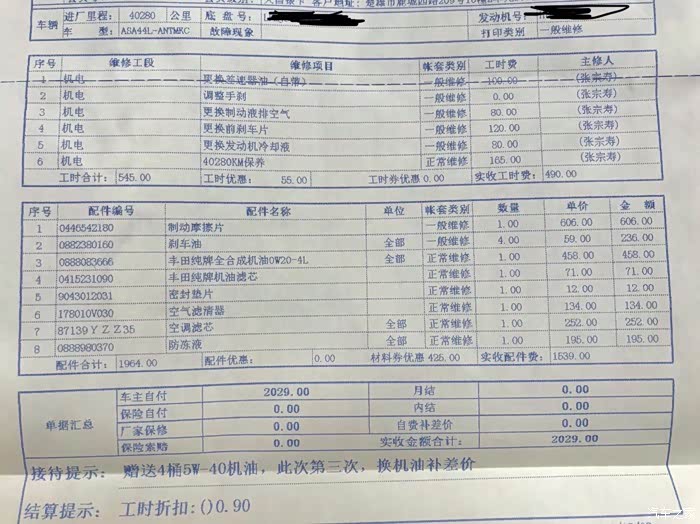 车辆 进厂里程: 40280 公里 底 盘 号: 发动机号
车 型: ASA44L-ANTMKC 故障现象 打印类别 一般维修
序号 维修工段 维修项目 帐套类别 工时费 主修人
1 机电 更换差速器油(自带) 一般维修 100.00 (张宗寿)
2 机电 调整手刹 一般维修 0.00 (张宗寿)
3 机电 更换制动液排空气 一般维修 80.00 (张宗寿)
4 机电 更换前刹车片 一般维修 120.00 (张宗寿)
5 机电 更换发动机冷却液 一般维修 80.00 (张宗寿)
6 机电 40280KM保养 正常维修 165.00 (张宗寿)
工时合计: 545.00 工时优惠: 55.00 工时券优惠 0.00 实收工时费: 490.00
序号 配件编号 配件名称 单位 帐套类别 数量 单价 金 额
1 0446542180 制动摩擦片 一般维修 1.00 606.00 606.00
2 0882380160 刹车油 全部 一般维修 4.00 59.00 236.00
3 0888083666 丰田纯牌全合成机油0W20-4L 全部 正常维修 1.00 458.00 458.00
4 0415231090 丰田纯牌机油滤芯 正常维修 1.00 71.00 71.00
5 9043012031 密封垫片 正常维修 1.00 12.00 12.00
6 178010V030 空气滤清器 正常维修 1.00 134.00 134.00
7 87139YZZ35 空调滤芯 全部 正常维修 1.00 252.00 252.00
8 0888980370 防冻液 全部 正常维修 1.00 195.00 195.00
配件合计: 1964.00 配件优惠: 0.00 材料券优惠 425.00 实收配件费: 1539.00
单据汇总 车主自付 2029.00 月结 0.00
保险自付 0.00 内结 0.00
厂家保修 0.00 自费补差价 0.00
保险索赔 0.00 实收金额合计: 2029.00
接待提示: 赠送4桶5W-40机油，此次第三次，换机油补差价
结算提示: 工时折扣:()0.90
汽车之家